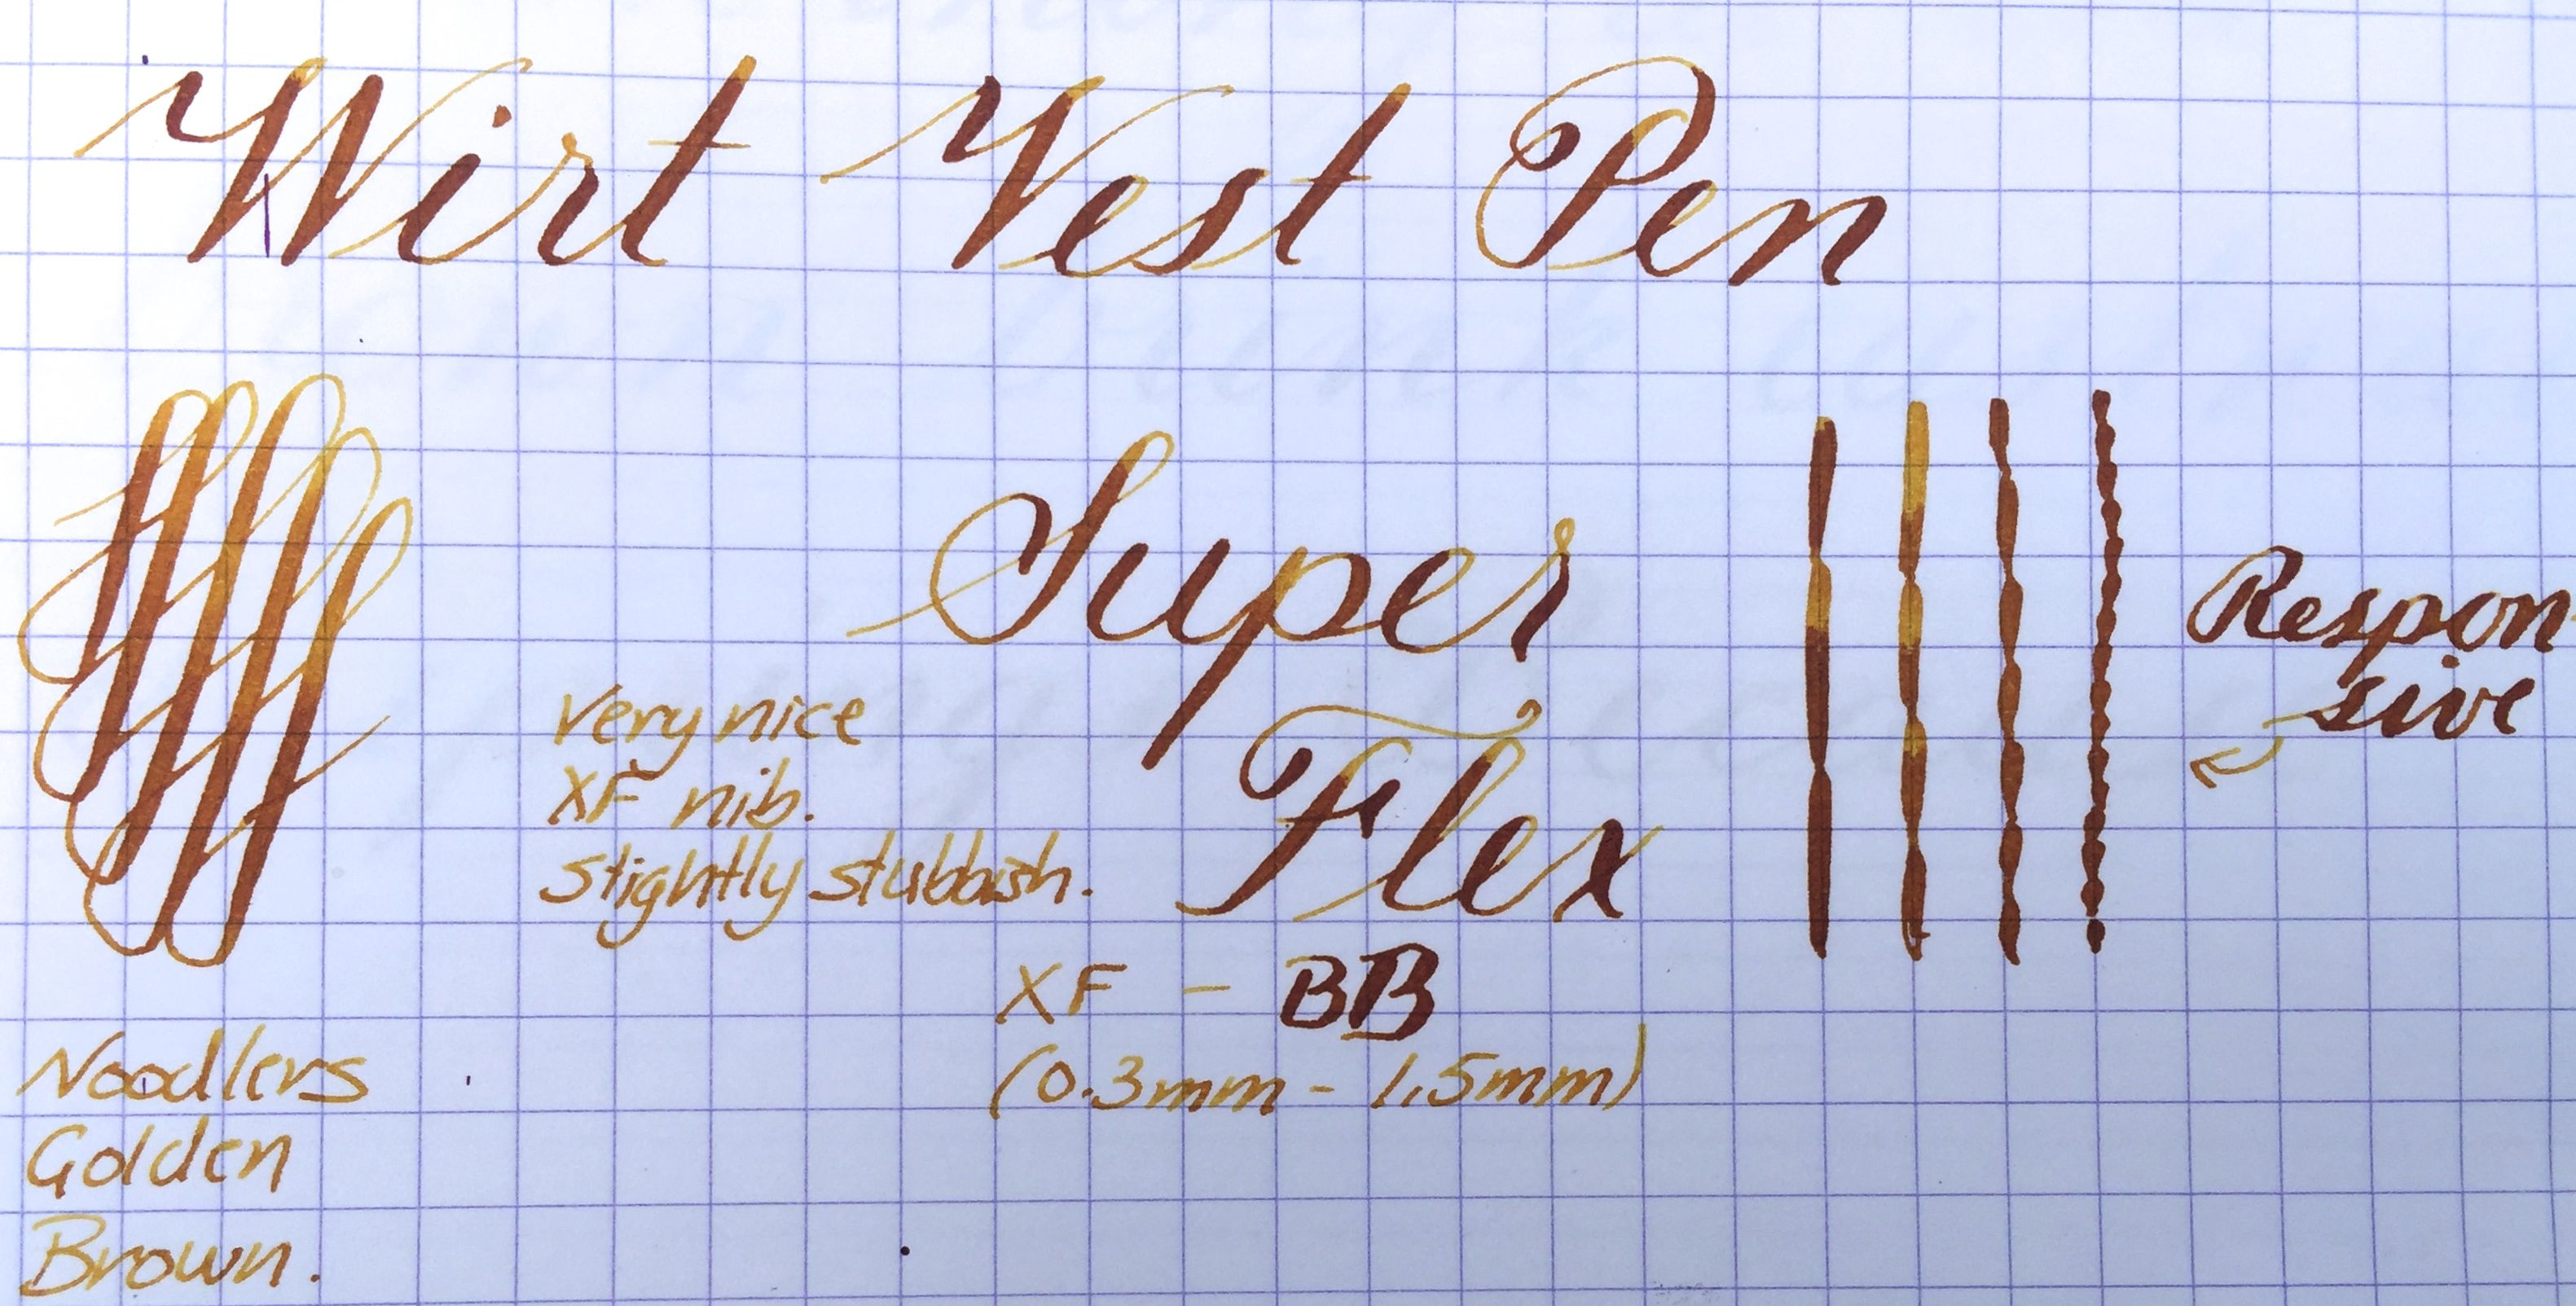 Wirt Vest Pen
Super
Flex
Respon
sive
Very nice
XF nib.
Slightly stubbish.
XF - BB
(0.3mm - 1.5mm)
Noodlers
Golden
Brown.